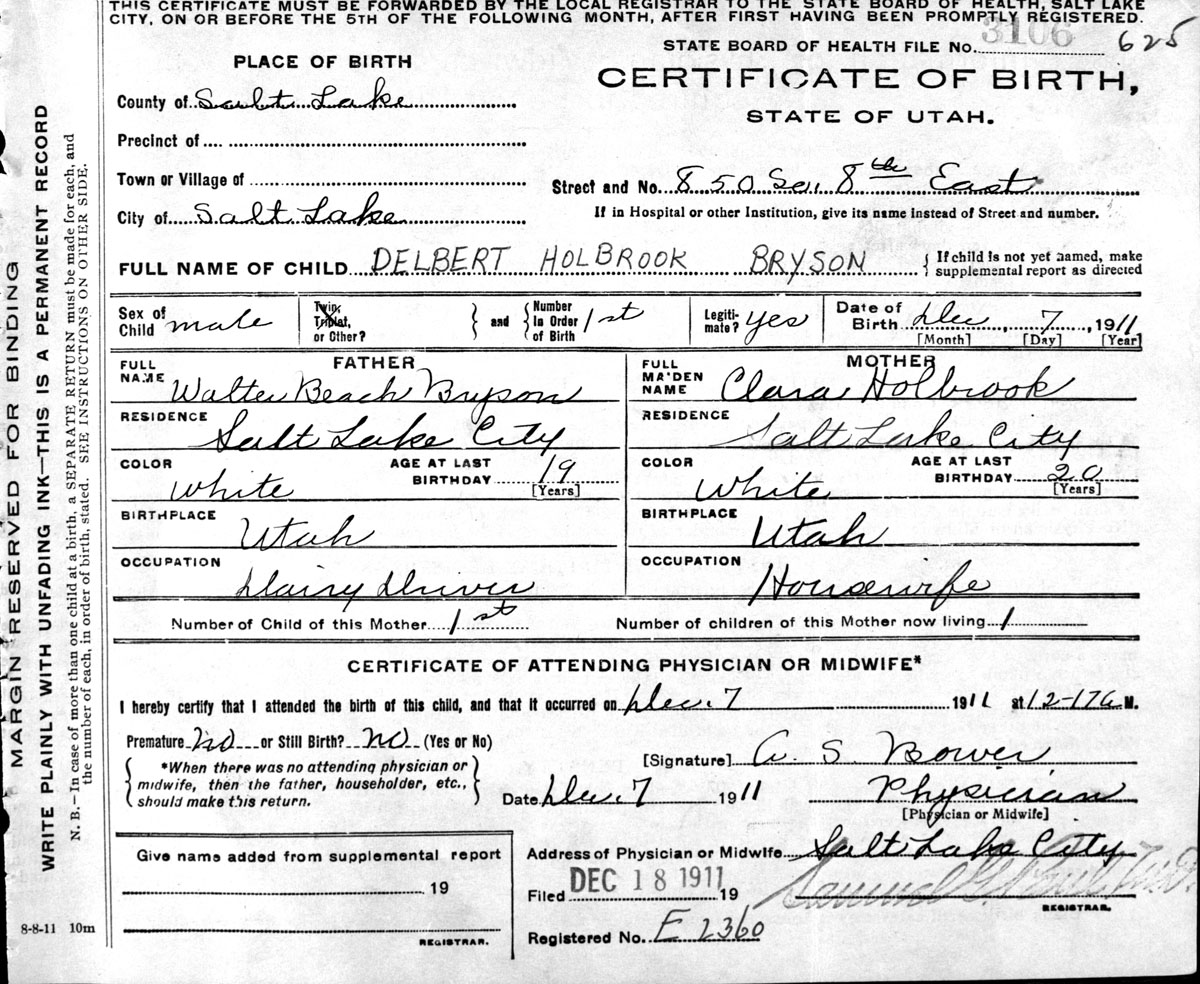 THIS CERTIFICATE MUST BE FORWARDED BY THE LOCAL REGISTRAR TO THE STATE BOARD OF HEALTH, SALT LAKE
CITY, ON OR BEFORE THE 5TH OF THE FOLLOWING MONTH, AFTER FIRST HAVING BEEN PROMPTLY REGISTERED.
STATE BOARD OF HEALTH FILE No. 3106 625
PLACE OF BIRTH
CERTIFICATE OF BIRTH,
STATE OF UTAH.
County of Salt Lake
Precinct of
Town or Village of
Street and No. 850 So. 8th East
City of Salt Lake
If in Hospital or other Institution, give its name instead of Street and number.
FULL NAME OF CHILD DELBERT HOLBROOK BRYSON
If child is not yet named, make
supplemental report as directed
Sex of
Child male
Twin,
Triplet,
or Other?
and
Number
In Order
of Birth 1st
Legiti-
mate? yes
Date of
Birth Dec, 7, 1911
[Month] [Day] [Year]
FATHER
FULL
NAME Walter Beach Bryson
RESIDENCE
Salt Lake City
COLOR
White
AGE AT LAST
BIRTHDAY 19
[Years]
BIRTHPLACE
Utah
OCCUPATION
Dairy Driver
MOTHER
FULL
MAIDEN
NAME Clara Holbrook
RESIDENCE
Salt Lake City
COLOR
White
AGE AT LAST
BIRTHDAY 20
[Years]
BIRTHPLACE
Utah
OCCUPATION
Housewife
Number of Child of this Mother 1st
Number of children of this Mother now living 1
CERTIFICATE OF ATTENDING PHYSICIAN OR MIDWIFE*
I hereby certify that I attended the birth of this child, and that it occurred on Dec. 7 1911 at 12-17a M.
Premature no or Still Birth? no (Yes or No)
*When there was no attending physician or
midwife, then the father, householder, etc.,
should make this return.
[Signature] A. S. Bower
Date Dec. 7 1911
Physician
[Physician or Midwife]
Give name added from supplemental report
19
REGISTRAR.
Address of Physician or Midwife Salt Lake City
Filed DEC 18 1911 19
Samuel G. Paul, M.D.
REGISTRAR.
Registered No. E 2360
8-8-11 10m
MARGIN RESERVED FOR BINDING
WRITE PLAINLY WITH UNFADING INK—THIS IS A PERMANENT RECORD
N. B.—In case of more than one child at a birth, a SEPARATE RETURN must be made for each, and
the number of each, in order of birth, stated. SEE INSTRUCTIONS ON OTHER SIDE.